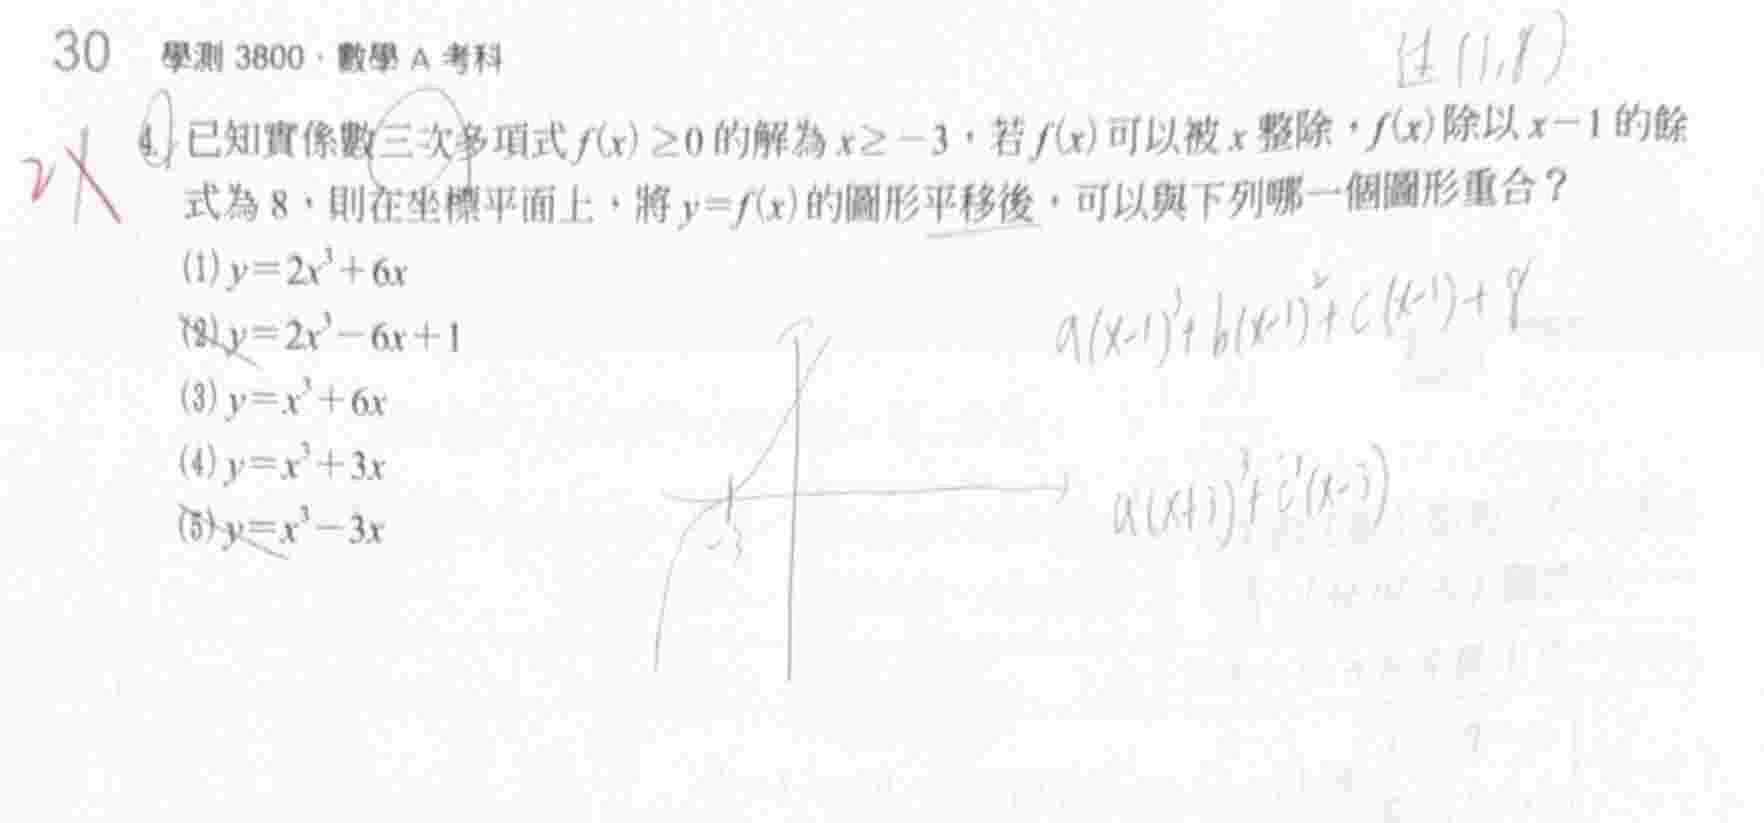 30 學測 3800．數學 A 考科
過 (1,8)
4. 已知實係數三次多項式 f(x) ≥0 的解為 x≥−3，若 f(x) 可以被 x 整除，f(x) 除以 x−1 的餘
式為 8，則在坐標平面上，將 y=f(x) 的圖形平移後，可以與下列哪一個圖形重合？
(1) y=2x³+6x
(2) y=2x³−6x+1
(3) y=x³+6x
(4) y=x³+3x
(5) y=x³−3x
a(x-1)³+b(x-1)²+c(x-1)+8
a(x+3)³+c'(x-3)
-3